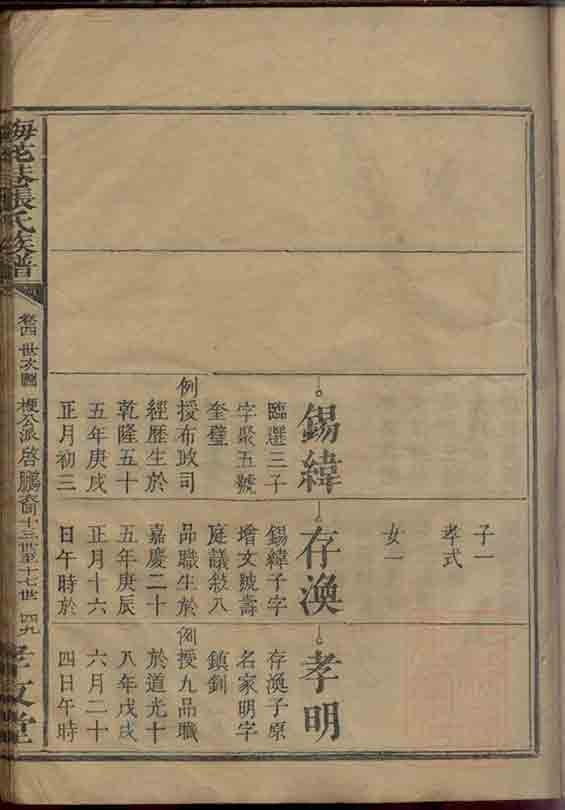 錫緯
臨選三子
字聚五號
奎璧
例授布政司
經歷生於
乾隆五十
五年庚戌
正月初三
子一
孝式
女一
存渙
錫緯子字
增文號壽
庭議敍八
品職生於
嘉慶二十
五年庚辰
正月十六
日午時於
孝明
存渙子原
名家明字
鎮釗
例授九品職
於道光十
八年戊戌
六月二十
四日午時
梅花巷張氏族譜
卷四 世次圖 梗公派啓鵬裔 十三世至十七世 四九
孝友堂